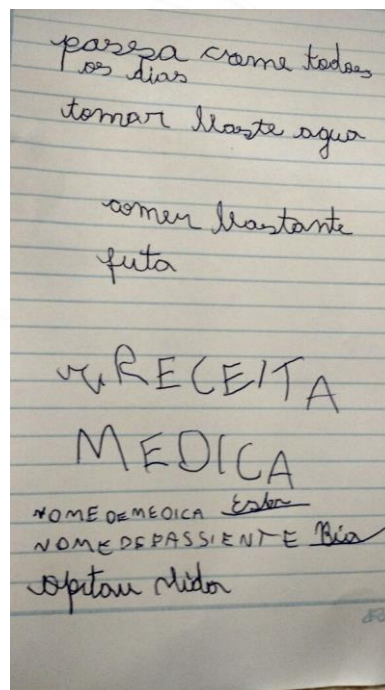 passa creme todos
os dias
tomar baste agua
comer bastante
futa
RECEITA
MEDICA
NOME DE MEDICA Ester
NOME DE PASSIENTE Bia
opitau